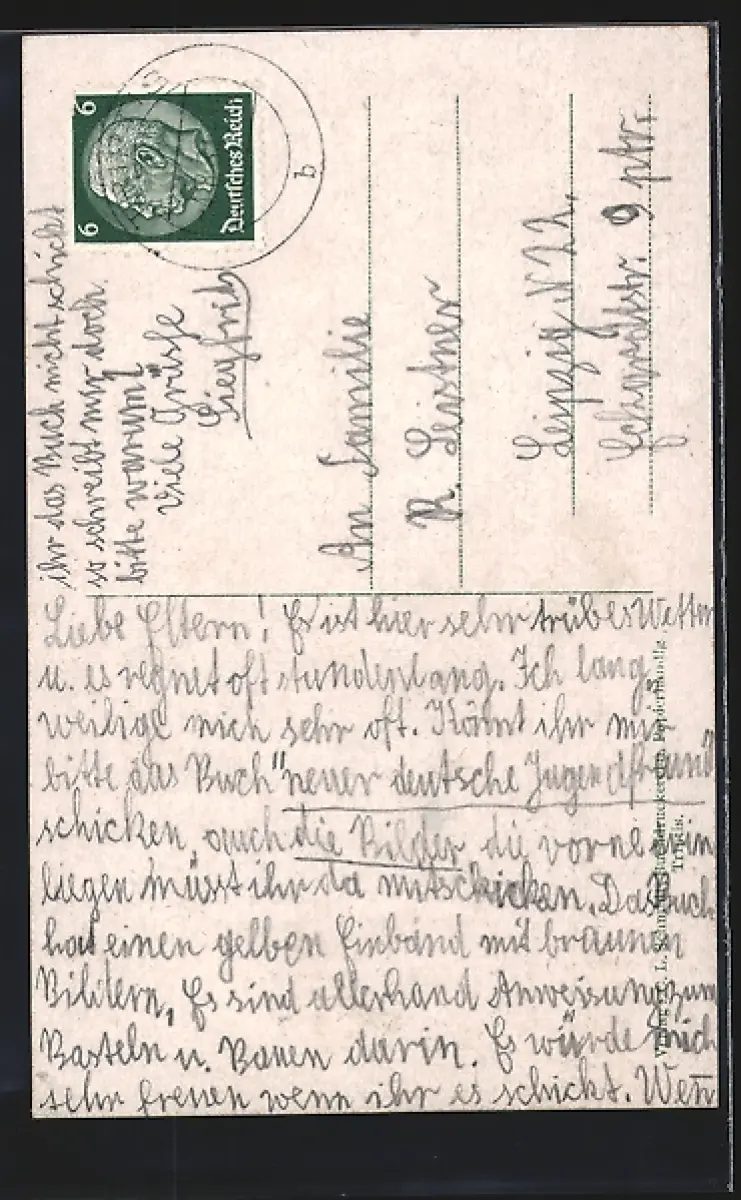 Liebe Eltern! Es ist hier sehr trübes Wetter
u. es regnet oft stundenlang. Ich lang
weilige mich sehr oft. Könnt ihr mir
bitte das Buch "neuer deutsche Jugendfreund
schicken, auch die Bilder die vorne
liegen müsst ihr da mitschicken. Das Buch
hat einen gelben Einband mit braunen
Bildern, Es sind allerhand Anweisung zum
Basteln u. Bauen darin. Es würde mich
sehr freuen wenn ihr es schickt. Wen̄
ihr das Buch nicht schickt
so schreibt mir doch
bitte warum!
Viele Grüsse
Siegfried
An Familie
R. Leistner
Leipzig N 22,
9 ptr.
6 6
Deutsches Reich
b
Triptis.